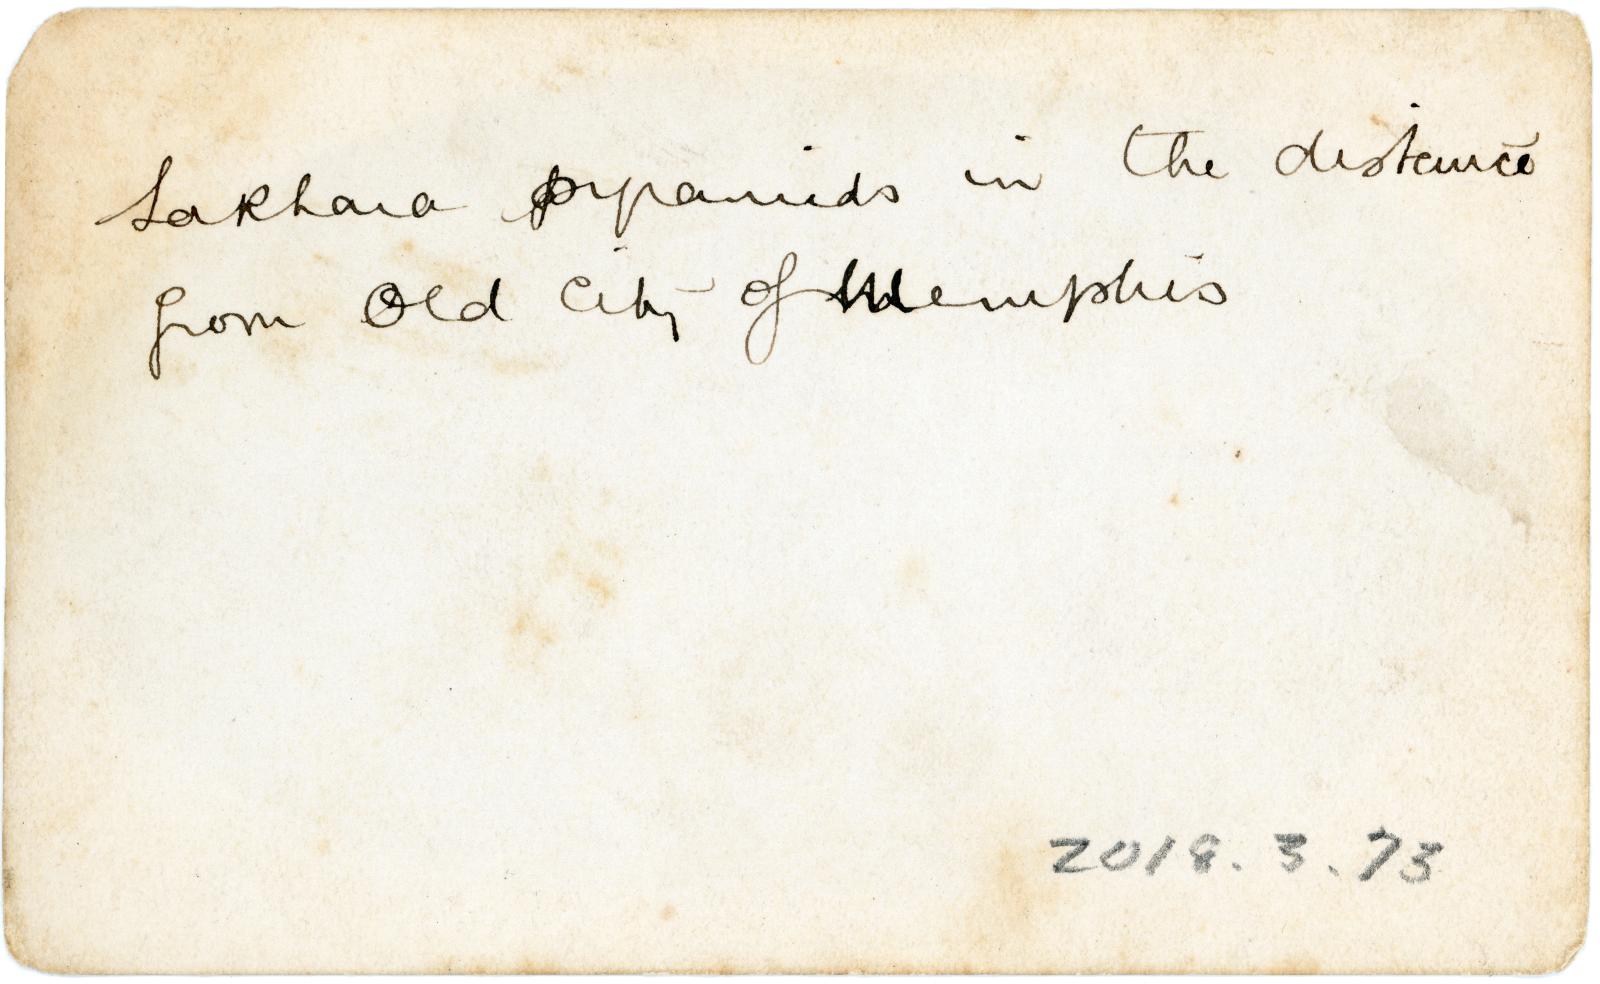 Sakhara pyramids in the distance
from Old City of Memphis
2018.3.73